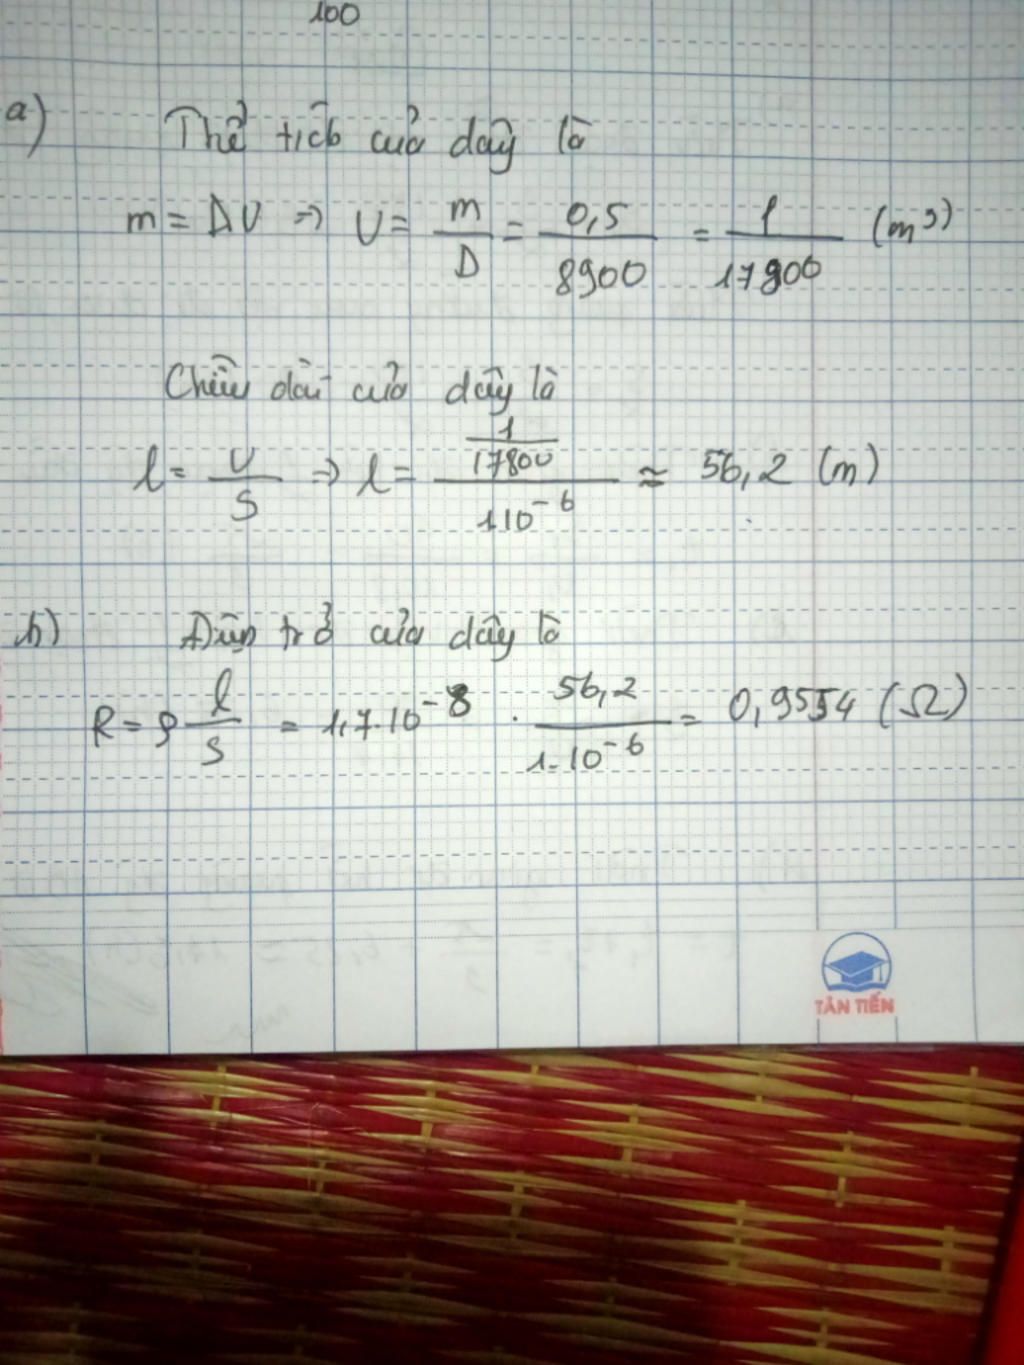 100
a) Thể tích của dây là
m = DV => V = m/D = 0,5/8900 = 1/17800 (m³)
Chiều dài của dây là
l = V/S => l = (1/17800)/(1.10⁻⁶) ≈ 56,2 (m)
b) Điện trở của dây là
R = ρ l/S = 1,7.10⁻⁸ . 56,2/(1.10⁻⁶) = 0,9554 (Ω)
TÂN TIẾN